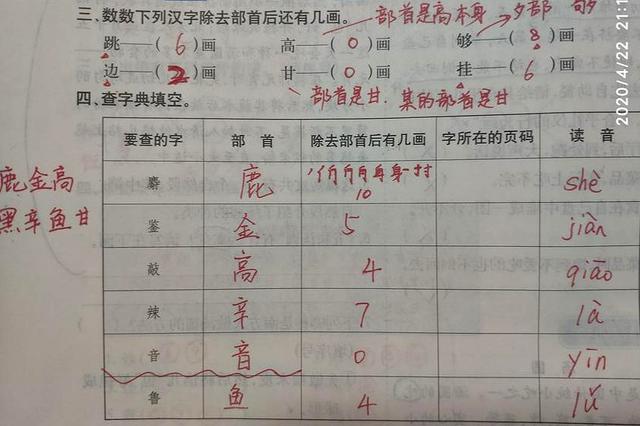 三、数数下列汉字除去部首后还有几画。 部首是高本身 夕部 够
跳——( 6 )画 高——( 0 )画 够——( 8 )画
边——( 2 )画 甘——( 0 )画 挂——( 6 )画
部首是甘. 某的部首是甘
四、查字典填空。
要查的字 部首 除去部首后有几画 字所在的页码 读音
麝 鹿 10 shè
鉴 金 5 jiàn
敲 高 4 qiāo
辣 辛 7 là
音 音 0 yīn
鲁 鱼 4 lǔ
鹿金高
黑辛鱼甘
2020/4/22 21:1